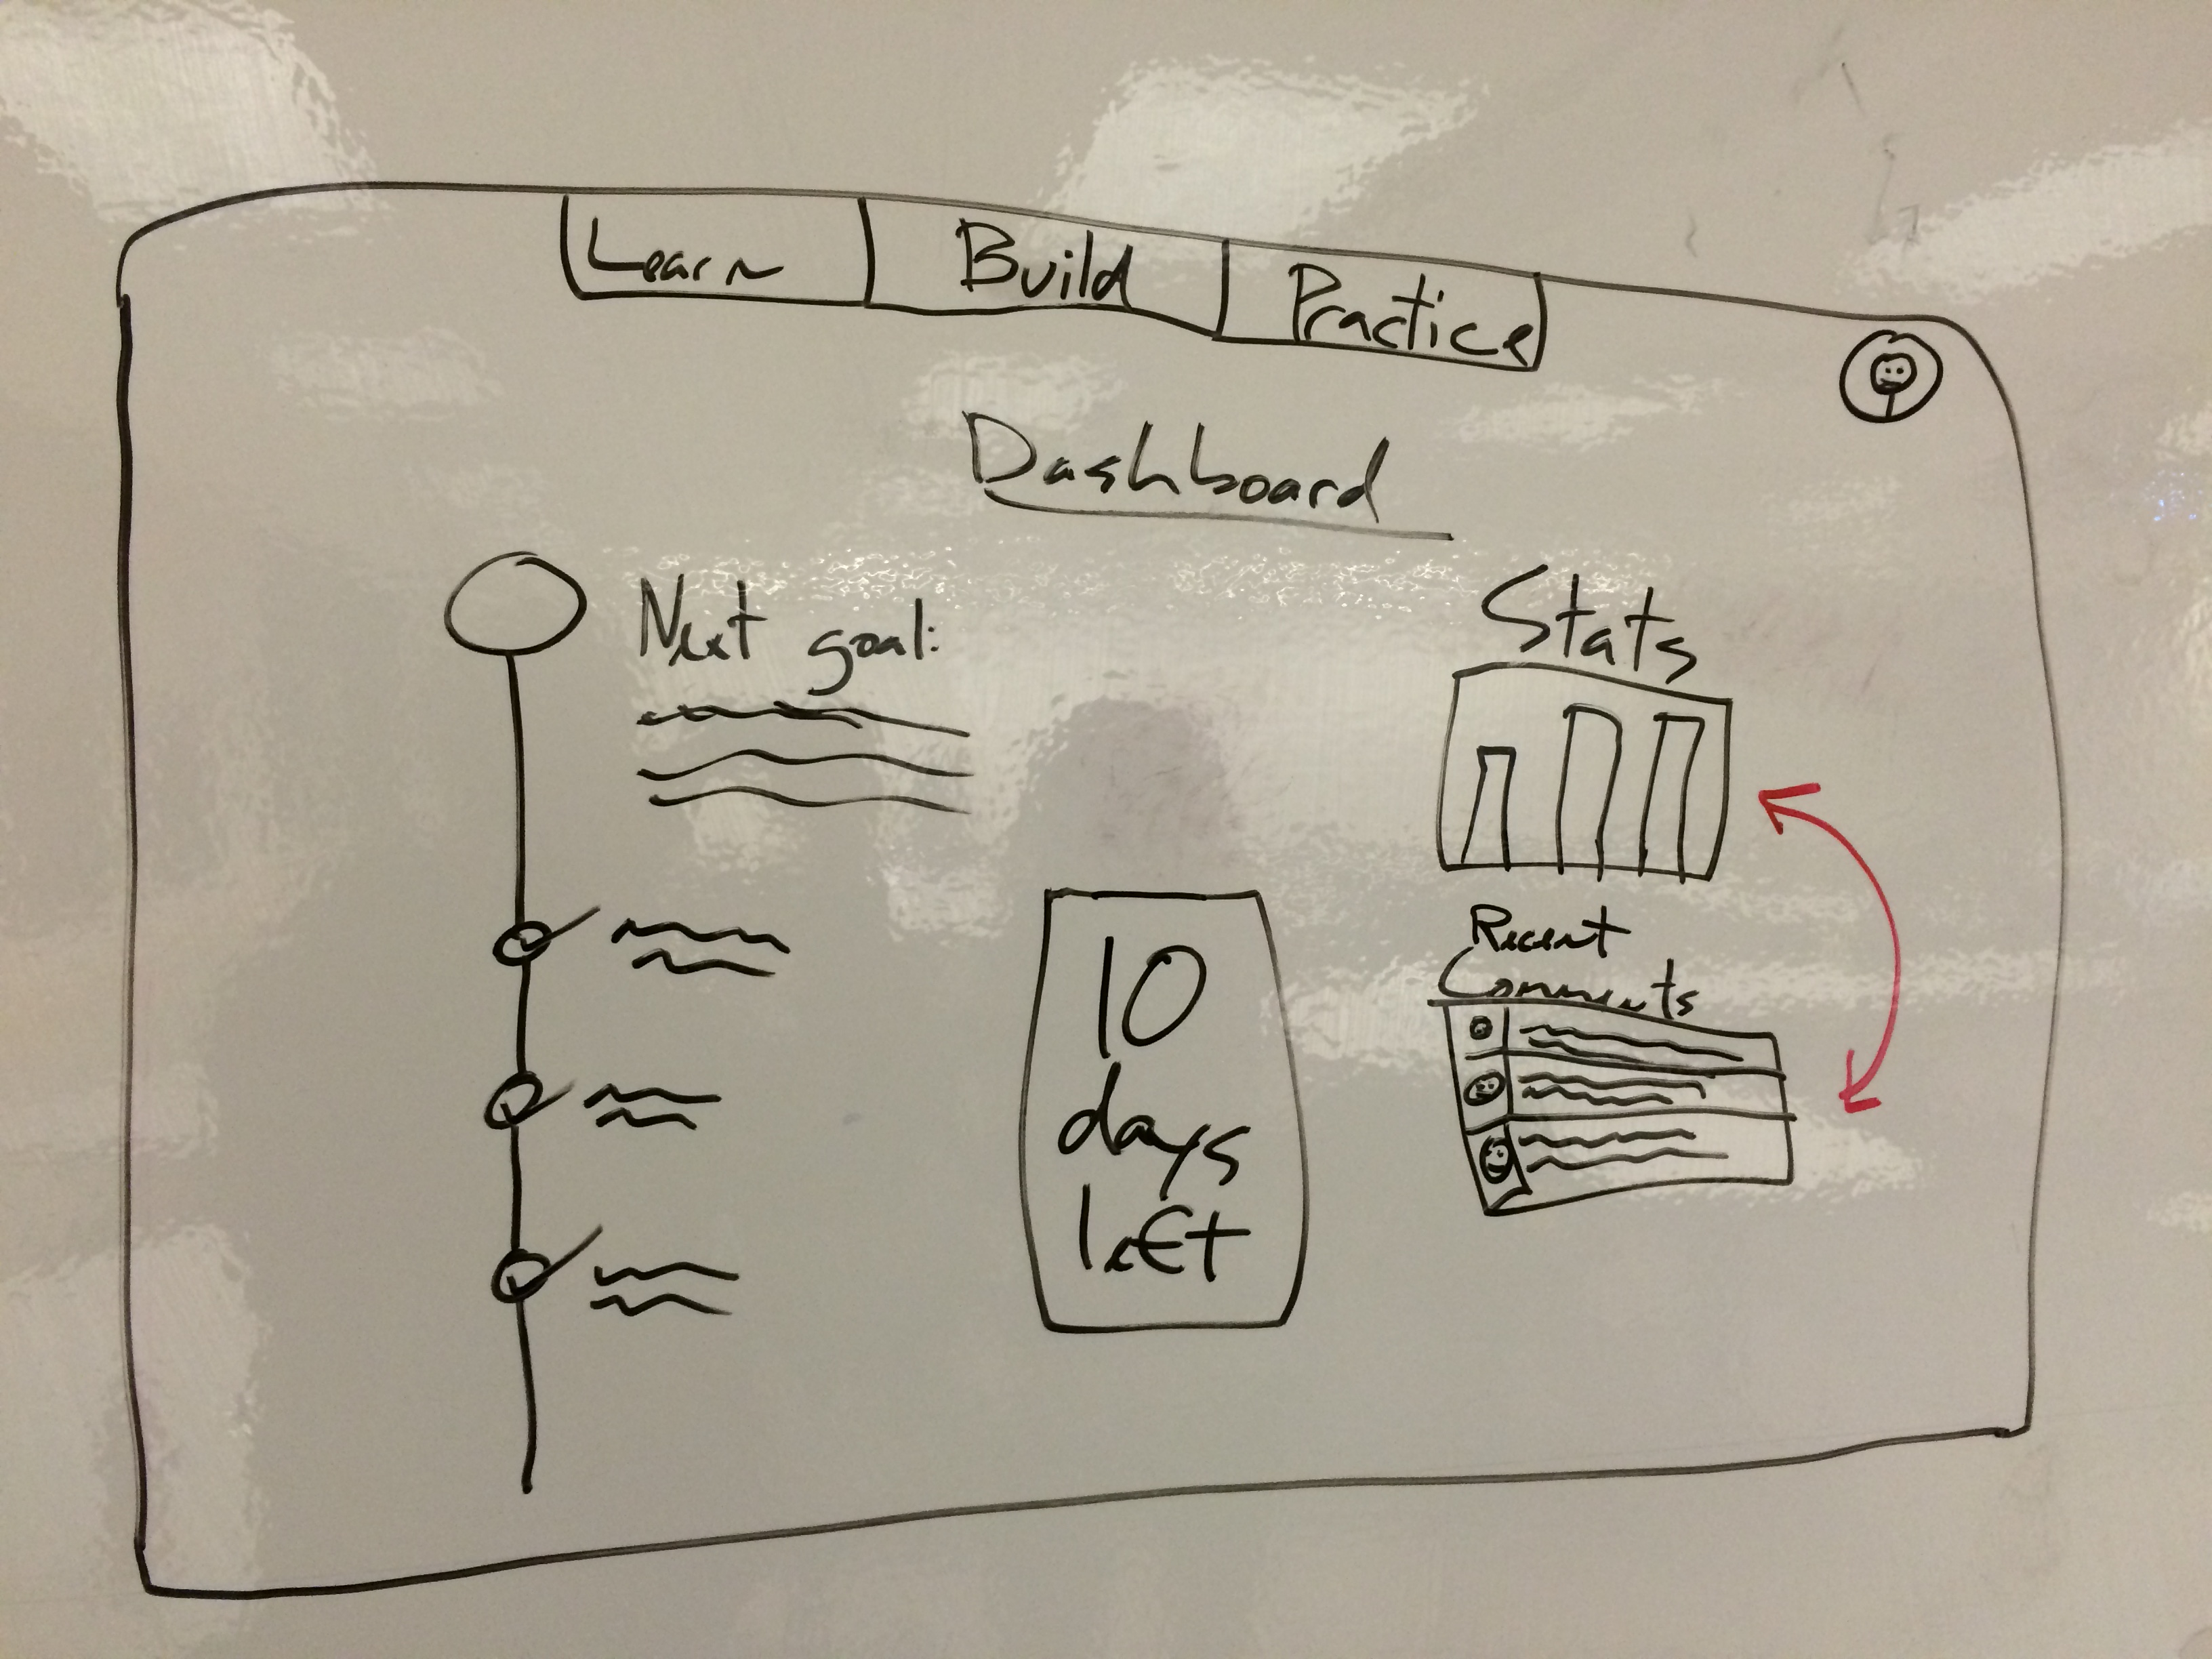 Learn Build Practice
Dashboard
Next goal:
Stats
10
days
left
Recent
Comments